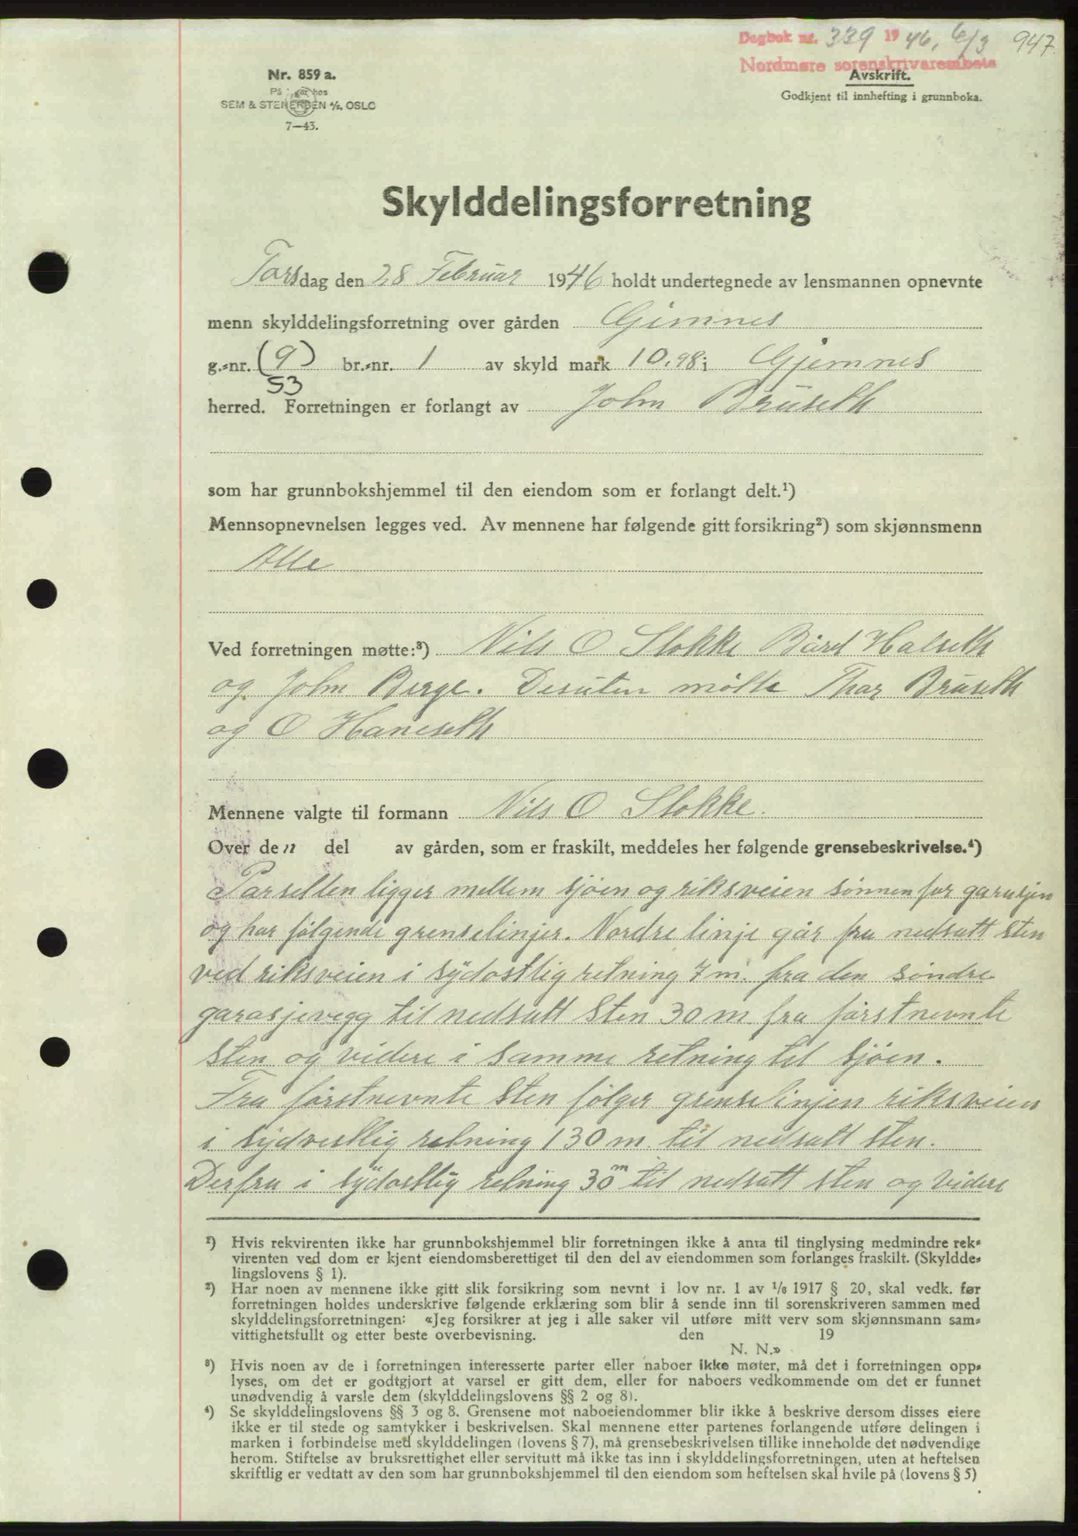 Dagbok nr. 339 1946, 6/3 947.
Nordmøre sorenskrivarembete
Nr. 859 a.
På lager hos
SEM & STENERSEN A/S, OSLO
7—43.
Avskrift.
Godkjent til innhefting i grunnboka.
Skylddelingsforretning
Torsdag den 28 Februar 1946 holdt undertegnede av lensmannen opnevnte
menn skylddelingsforretning over gården Gimnes
g.-nr. (9) br.-nr. 1 av skyld mark 10.98 i Gjemnes
53
herred. Forretningen er forlangt av John Bruseth
som har grunnbokshjemmel til den eiendom som er forlangt delt.¹)
Mennsopnevnelsen legges ved. Av mennene har følgende gitt forsikring²) som skjønnsmenn
Alle
Ved forretningen møtte:³) Nils O Stokke Bård Halseth
og John Berge. Desuten møtte Thor Bruseth
og O Haneseth
Mennene valgte til formann Nils O Stokke.
Over den del av gården, som er fraskilt, meddeles her følgende grensebeskrivelse.⁴)
Parsellen ligger mellem sjøen og riksveien sønnenfor garasjen
og har følgende grenselinjer. Nordre linje går fra nedsatt sten
ved riksveien i sydostlig retning 7 m. fra den søndre
garasjevegg til nedsatt sten 30 m fra førstnevnte
sten og videre i samme retning til sjøen.
Fra førstnevnte sten følger grenselinjen riksveien
i sydvestlig retning 130 m. til nedsatt sten.
Derfra i sydostlig retning 30 m til nedsatt sten og videre
¹) Hvis rekvirenten ikke har grunnbokshjemmel blir forretningen ikke å anta til tinglysing medmindre rek-
virenten ved dom er kjent eiendomsberettiget til den del av eiendommen som forlanges fraskilt. (Skyldde-
lingslovens § 1).
²) Har noen av mennene ikke gitt slik forsikring som nevnt i lov nr. 1 av 1/6 1917 § 20, skal vedk. før
forretningen holdes underskrive følgende erklæring som blir å sende inn til sorenskriveren sammen med
skylddelingsforretningen: «Jeg forsikrer at jeg i alle saker vil utføre mitt verv som skjønnsmann sam-
vittighetsfullt og etter beste overbevisning. den 19
N. N.»
³) Hvis noen av de i forretningen interesserte parter eller naboer ikke møter, må det i forretningen opp-
lyses, om det er godtgjort at varsel er gitt dem, eller for naboers vedkommende om det er funnet
unødvendig å varsle dem (skylddelingslovens §§ 2 og 8).
⁴) Se skylddelingslovens §§ 3 og 8. Grensene mot naboeiendommer blir ikke å beskrive dersom disses eiere
ikke er til stede og samtykker i beskrivelsen. Skal mennene etter partenes forlangende utføre delingen i
marken i forbindelse med skylddelingen (lovens § 7), må grensebeskrivelsen tillike inneholde det nødvendige
herom. Stiftelse av bruksrettighet eller servitutt må ikke tas inn i skylddelingsforretningen, uten at heftelsen
skriftlig er vedtatt av den som har grunnbokshjemmel til den eiendom som heftelsen skal hvile på (lovens § 5)